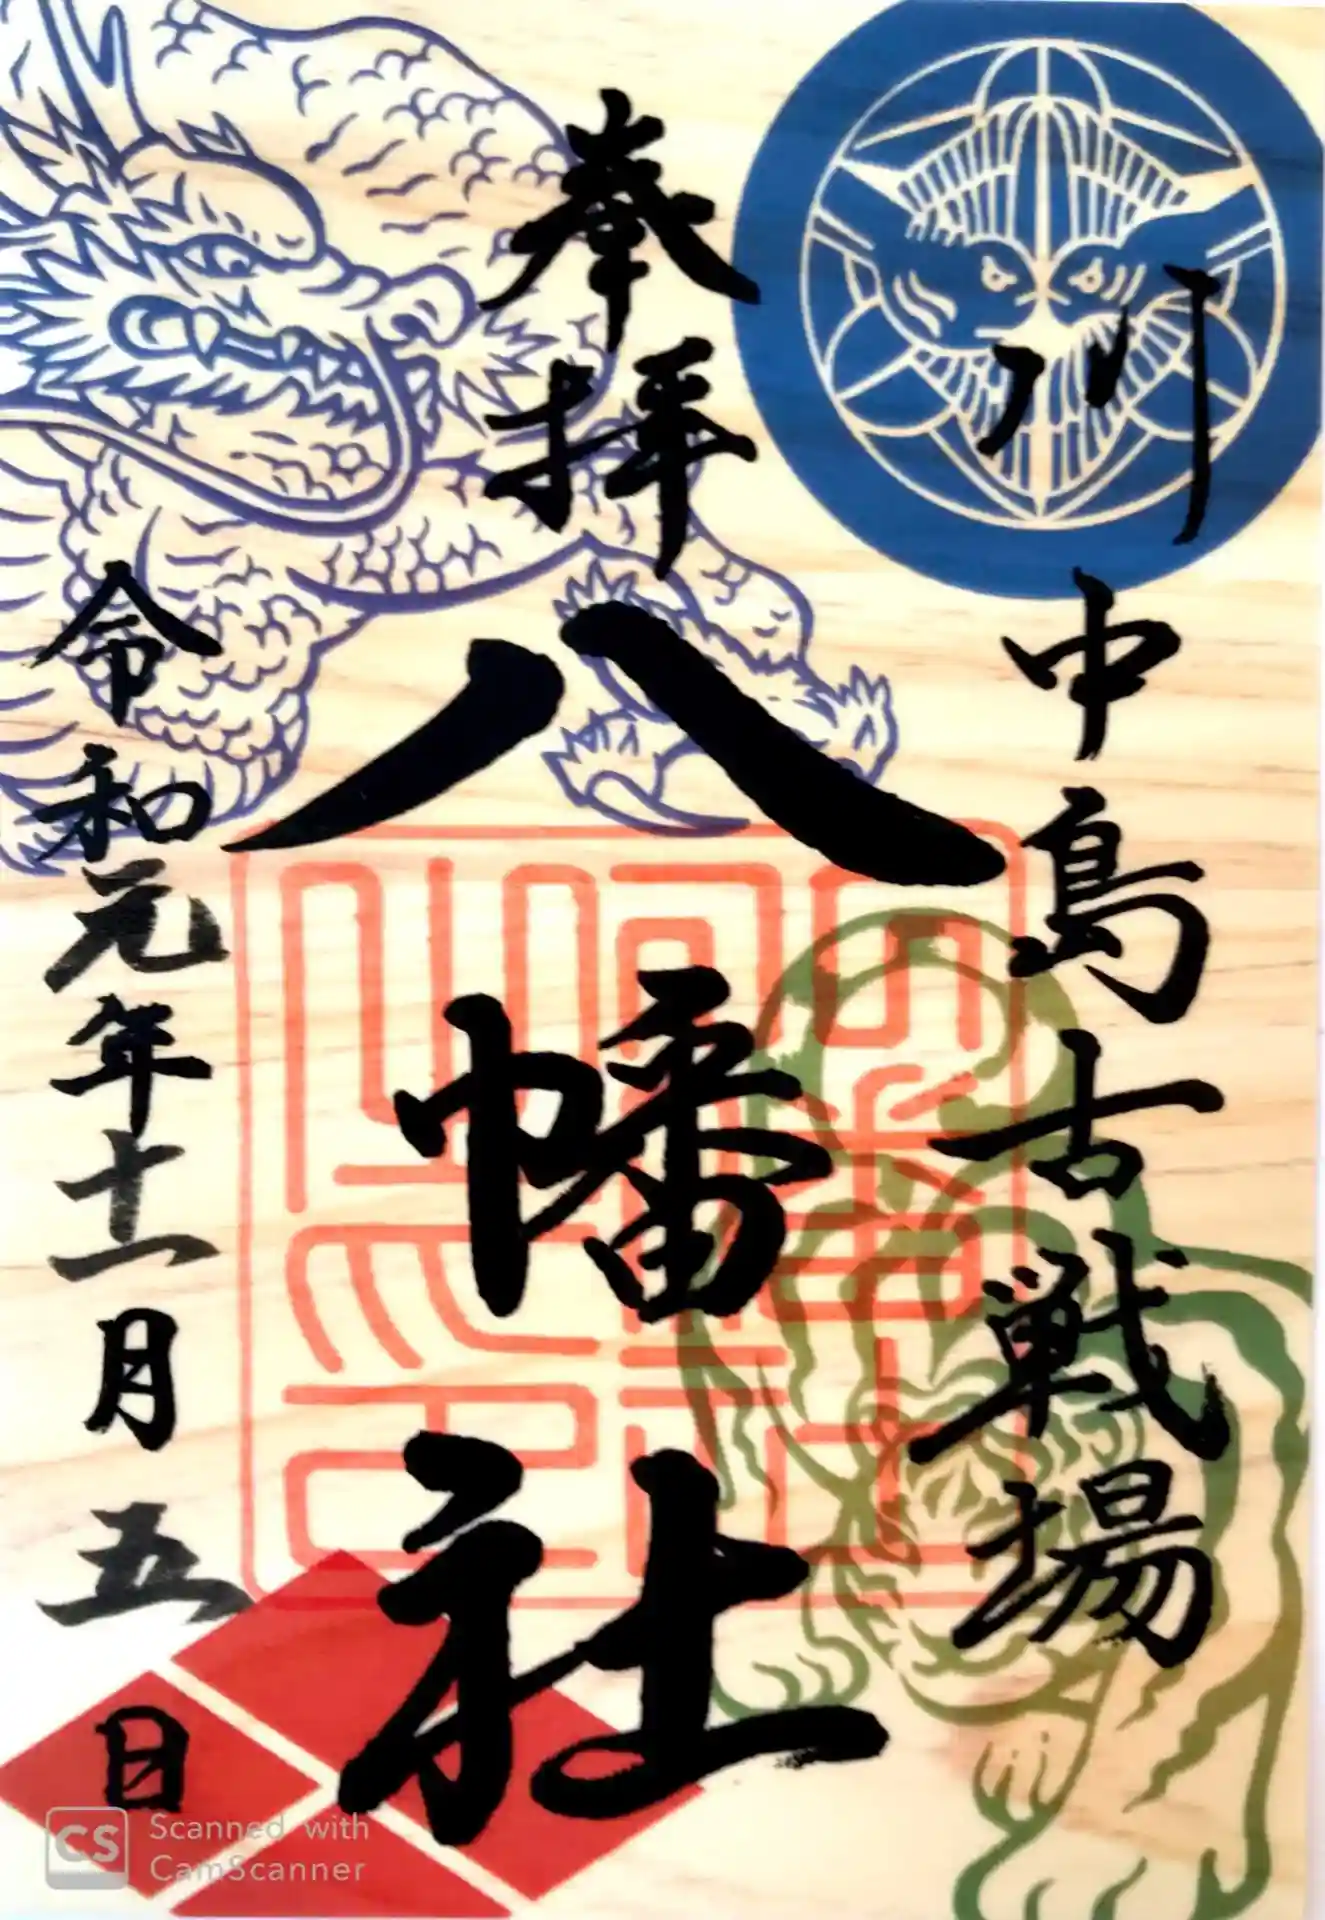 川中島古戦場
奉拝
八幡社
令和元年十一月五日
CS
Scanned with
CamScanner